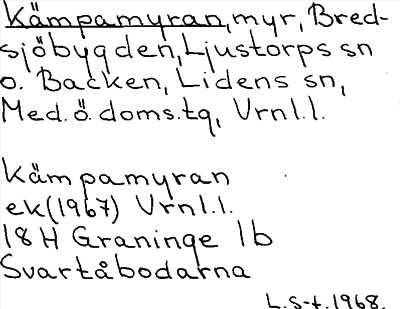 Kämpamyran, myr, Bred-
sjöbygden, Ljustorps sn
o. Backen, Lidens sn,
Med. ö. doms.tg, Vrnl.l.
Kämpamyran
ek (1967) Vrnl.l.
18 H Graninge 1b
Svartåbodarna
L.S-t. 1968.